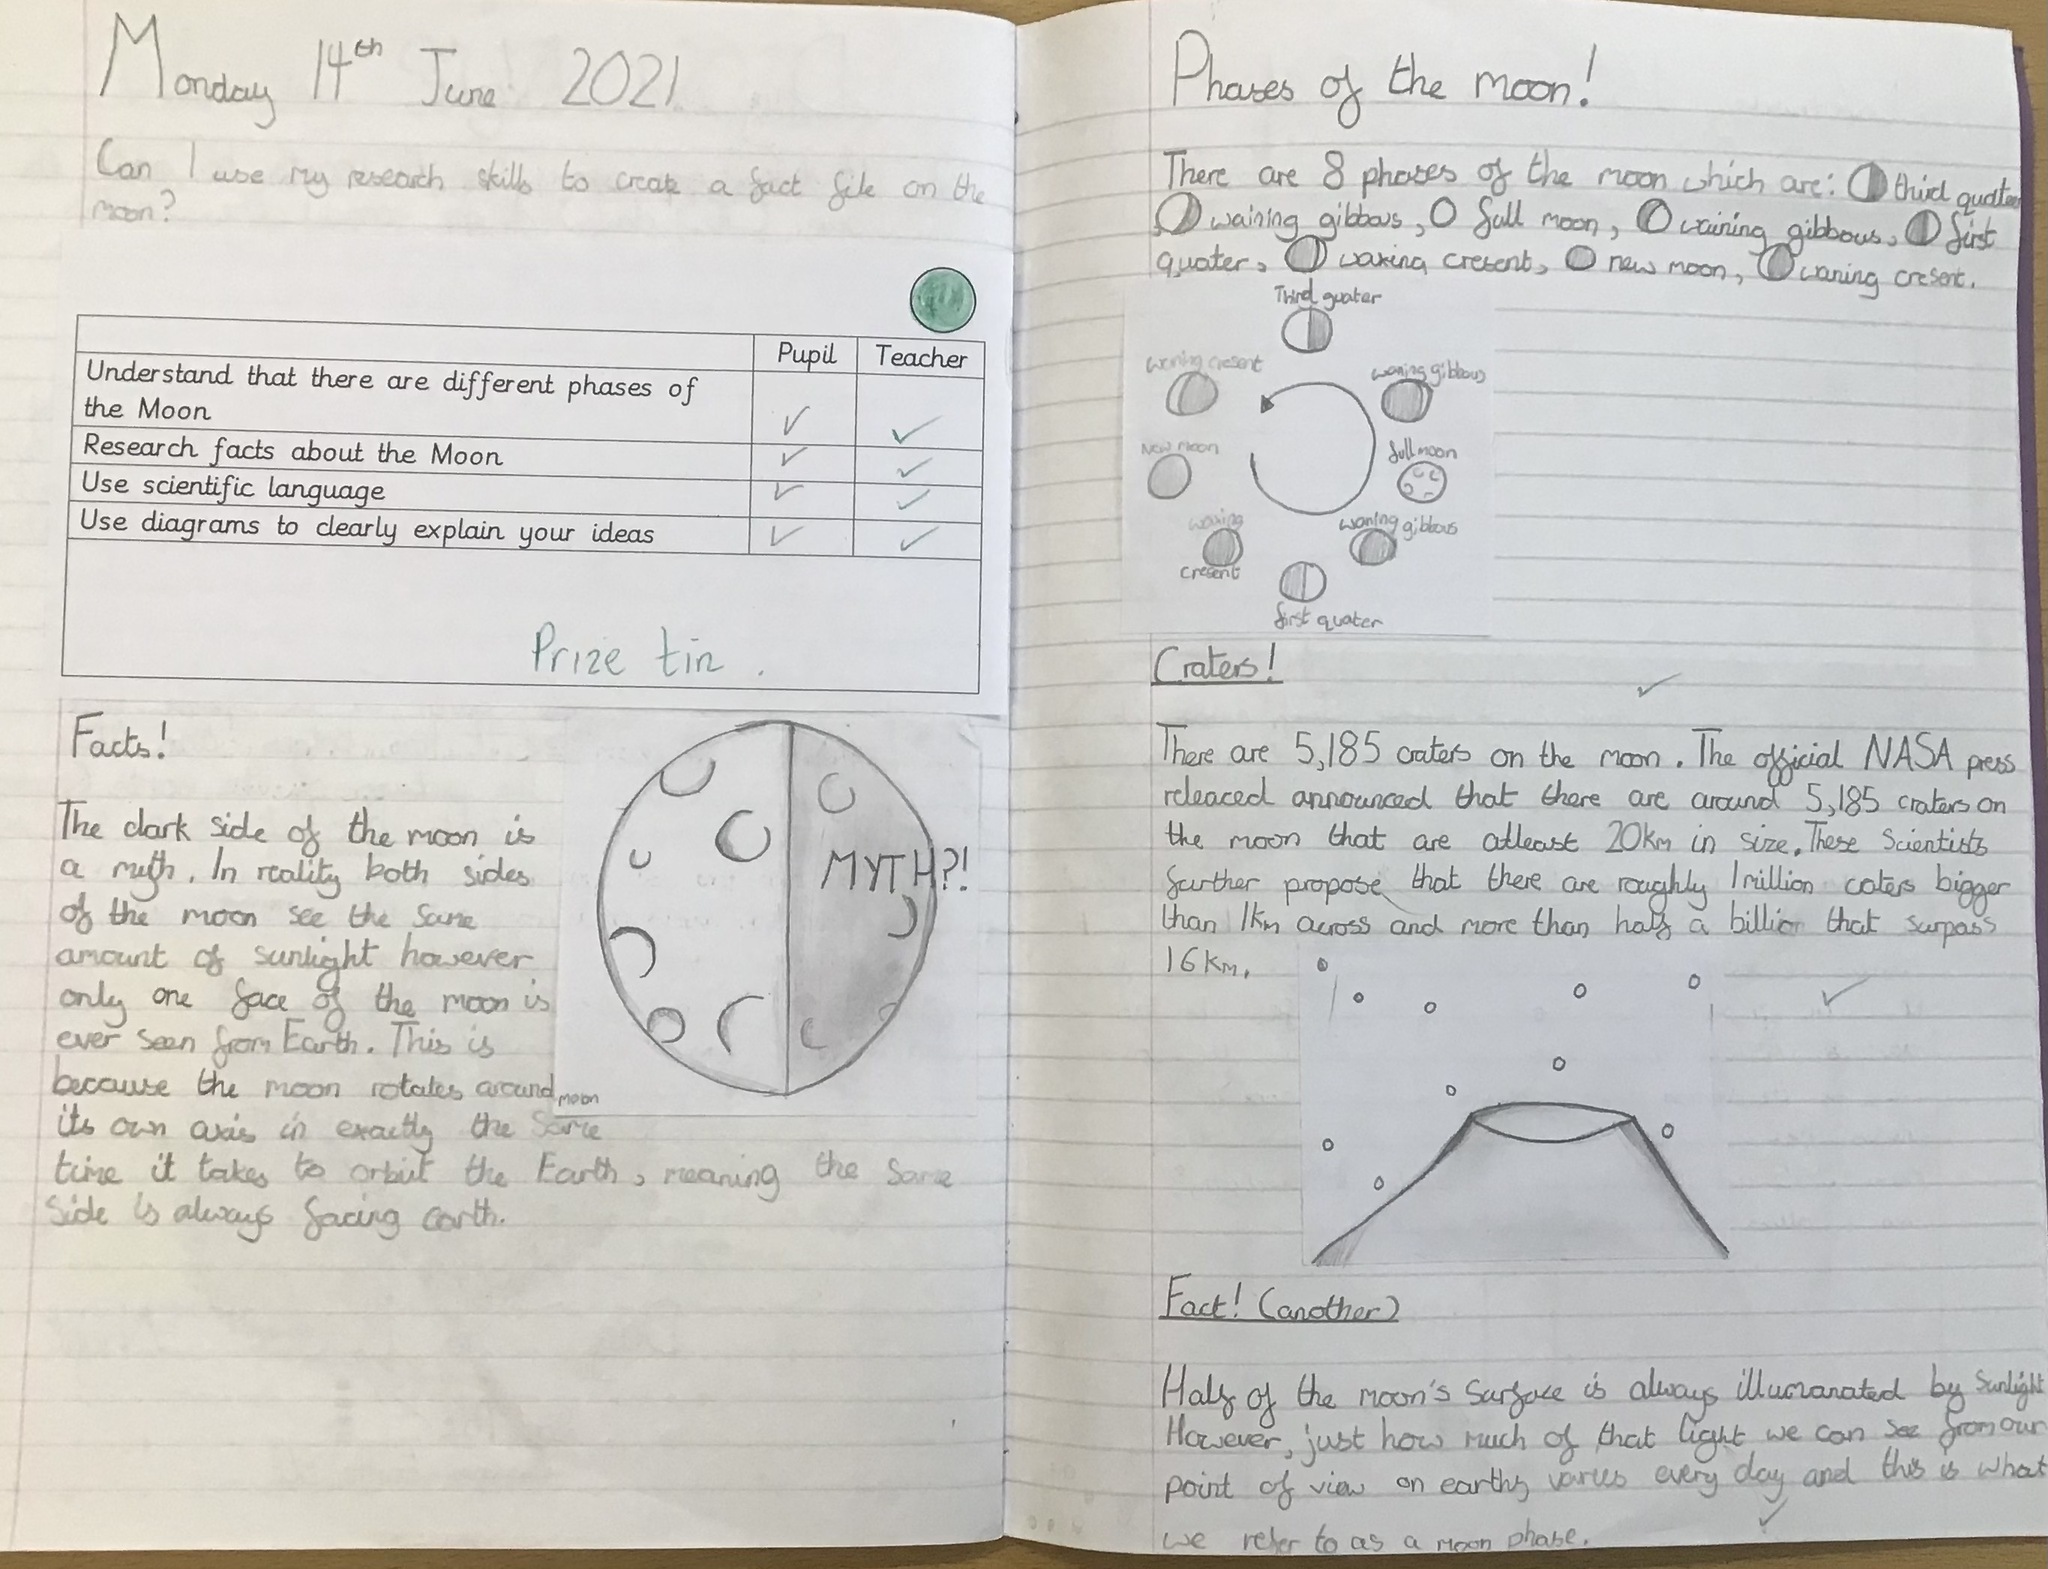 Monday 14th June 2021
Can I use my research skills to create a fact file on the
moon?
Pupil Teacher
Understand that there are different phases of
the Moon
Research facts about the Moon
Use scientific language
Use diagrams to clearly explain your ideas
Prize tin.
Facts!
The dark side of the moon is
a myth. In reality both sides
of the moon see the same
amount of sunlight however
only one face of the moon is
ever seen from Earth. This is
because the moon rotates around
its own axis in exactly the same
time it takes to orbit the Earth, meaning the same
side is always facing earth.
MYTH?!
moon
Phases of the moon!
There are 8 phases of the moon which are: third quater
, waining gibbous, full moon, waining gibbous, first
quater, waxing cresent, new moon, waning cresent.
Third quater
waning cresent
waning gibbous
New moon
full moon
waxing
cresent
waning gibbous
first quater
Craters!
There are 5,185 craters on the moon. The official NASA press
releaced announced that there are around 5,185 craters on
the moon that are atleast 20km in size. These scientists
further propose that there are roughly 1 million caters bigger
than 1km across and more than half a billion that surpass
16km.
Fact! (another)
Half of the moon's surface is always illumanated by sunlight
However, just how much of that light we can see from our
point of view on earth, varies every day and this is what
we refer to as a moon phase.